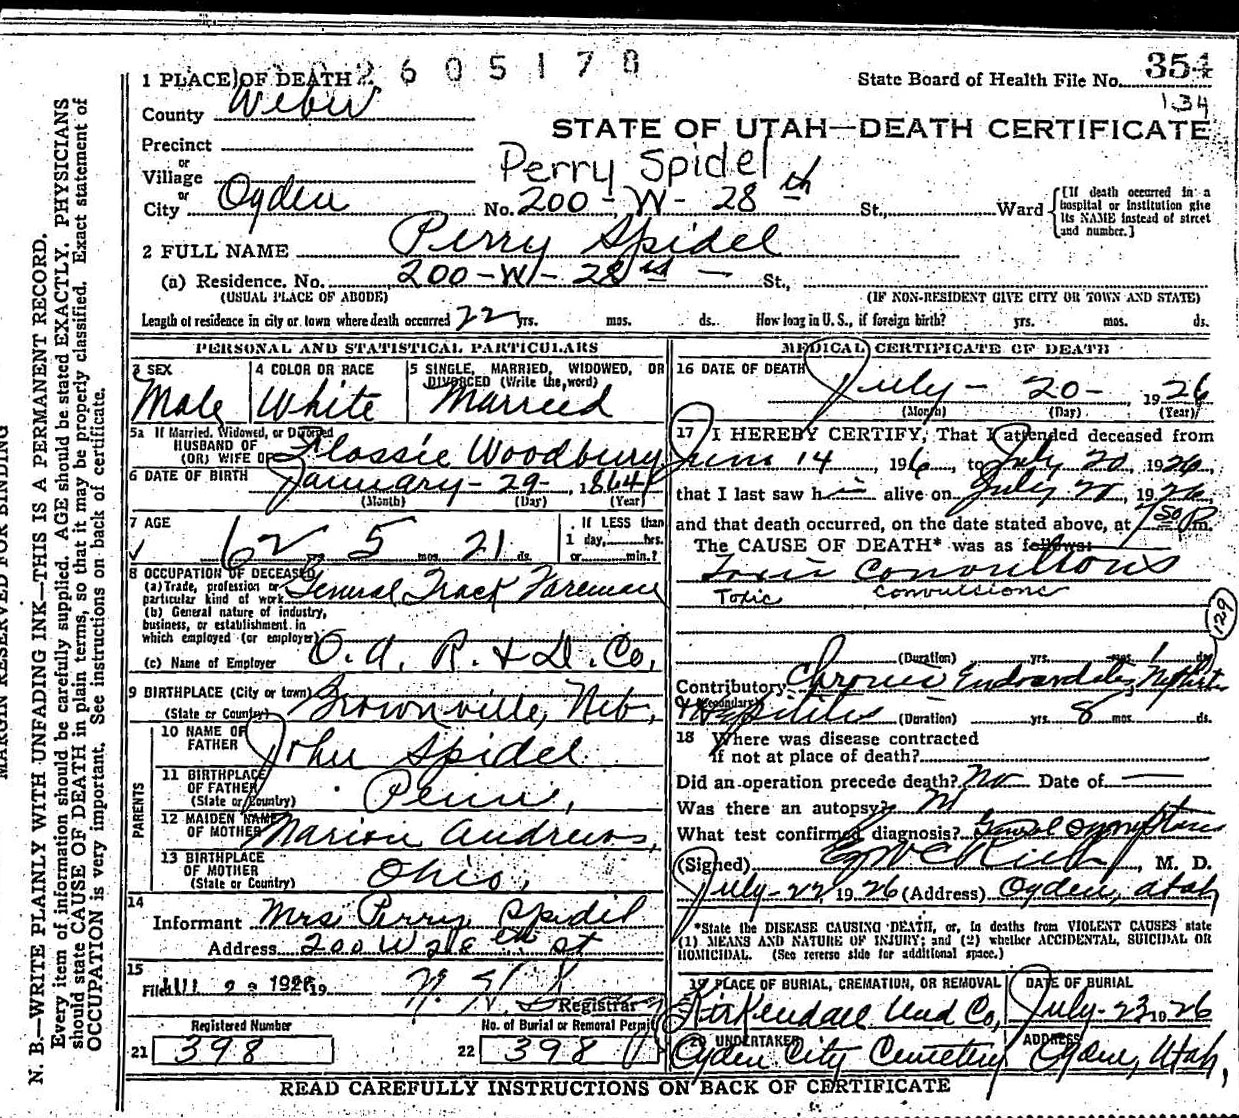 2605178
1 PLACE OF DEATH
State Board of Health File No. 354
134
County Weber
STATE OF UTAH—DEATH CERTIFICATE
Precinct
or
Village
Perry Spidel
or
City Ogden No. 200-W-28th St., Ward
[If death occurred in a hospital or institution give its NAME instead of street and number.]
2 FULL NAME Perry Spidel
(a) Residence. No. 200-W-28th St.,
(USUAL PLACE OF ABODE) (IF NON-RESIDENT GIVE CITY OR TOWN AND STATE)
Length of residence in city or town where death occurred 22 yrs. mos. ds. How long in U.S., if foreign birth? yrs. mos. ds.
PERSONAL AND STATISTICAL PARTICULARS
3 SEX
Male
4 COLOR OR RACE
White
5 SINGLE, MARRIED, WIDOWED, OR
DIVORCED (Write the word)
Married
5a If Married, Widowed, or Divorced
HUSBAND OF
(OR) WIFE OF Flossie Woodbury
6 DATE OF BIRTH January-29-1864
(Month) (Day) (Year)
7 AGE
62 yrs. 5 mos. 21 ds.
If LESS than
1 day, hrs.
or min.?
8 OCCUPATION OF DECEASED
(a) Trade, profession or
particular kind of work General Track Foreman
(b) General nature of industry,
business, or establishment in
which employed (or employer)
(c) Name of Employer O. U. R. & D. Co.
9 BIRTHPLACE (City or town) Brownville, Neb.
(State or Country)
PARENTS
10 NAME OF
FATHER John Spidel
11 BIRTHPLACE
OF FATHER
(State or Country) Penn.
12 MAIDEN NAME
OF MOTHER Marion Andrews,
13 BIRTHPLACE
OF MOTHER
(State or Country) Ohio,
14
Informant Mrs Perry Spidel
Address 200 W 28th St
15
Filed 1926 19
Registrar
Registered Number
21 398
No. of Burial or Removal Permit
22 398
MEDICAL CERTIFICATE OF DEATH
16 DATE OF DEATH
July-20-1926
(Month) (Day) (Year)
17 I HEREBY CERTIFY, That I attended deceased from
June 14, 1926, to July 20, 1926,
that I last saw him alive on July 20, 1926,
and that death occurred, on the date stated above, at 750 P.m.
The CAUSE OF DEATH* was as follows:
Toxic Convulsions
Toxic Convulsions
129
(Duration) yrs. mos. 1 ds.
Contributory Chronic Endocarditis, Nephritis
(Secondary)
& Hepatitis (Duration) yrs. 8 mos. ds.
18 Where was disease contracted
if not at place of death?
Did an operation precede death? No Date of
Was there an autopsy? No
What test confirmed diagnosis? General Symptoms
(Signed) , M. D.
July-22, 1926 (Address) Ogden, Utah
*State the DISEASE CAUSING DEATH, or, in deaths from VIOLENT CAUSES state
(1) MEANS AND NATURE OF INJURY; and (2) whether ACCIDENTAL, SUICIDAL OR
HOMICIDAL. (See reverse side for additional space.)
19 PLACE OF BURIAL, CREMATION, OR REMOVAL
Kirkendall Und Co,
DATE OF BURIAL
July-23 1926
20 UNDERTAKER
Ogden City Cemetery
ADDRESS
Ogden, Utah,
READ CAREFULLY INSTRUCTIONS ON BACK OF CERTIFICATE
MARGIN RESERVED FOR BINDING
N. B.—WRITE PLAINLY WITH UNFADING INK—THIS IS A PERMANENT RECORD.
Every item of information should be carefully supplied. AGE should be stated EXACTLY. PHYSICIANS
should state CAUSE OF DEATH in plain terms, so that it may be properly classified. Exact statement of
OCCUPATION is very important. See instructions on back of certificate.